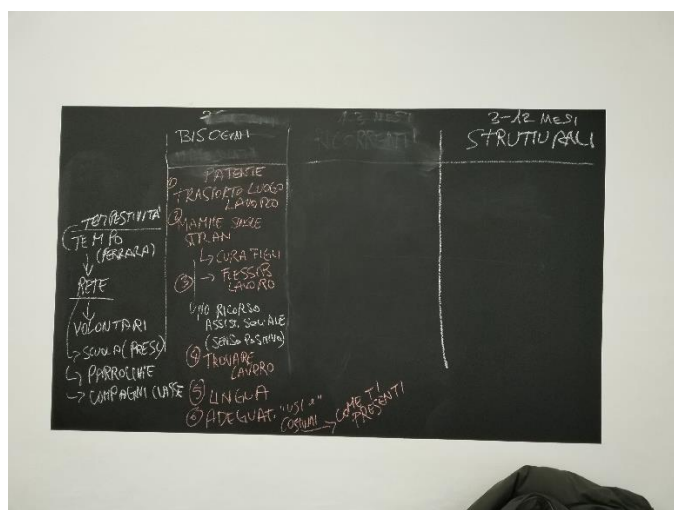 BISOGNI
RICORRENTI
3-12 MESI
STRUTTURALI
TEMPESTIVITÀ
TEMPO
(FERRARA)
RETE
VOLONTARI
SCUOLA (PRESS)
PARROCCHIE
COMPAGNI CLASSE
PATENTE
① TRASPORTO LUOGO
LAVORO
② MAMME SINGLE
STRAN
CURA FIGLI
③ → FLESSIB
LAVORO
NO RICORSO
ASSIST. SOCIALE
(SENSO POSITIVO)
④ TROVARE
LAVORO
⑤ LINGUA
⑥ ADEGUAT. "USI e
COSTUMI → COME TI
PRESENTI